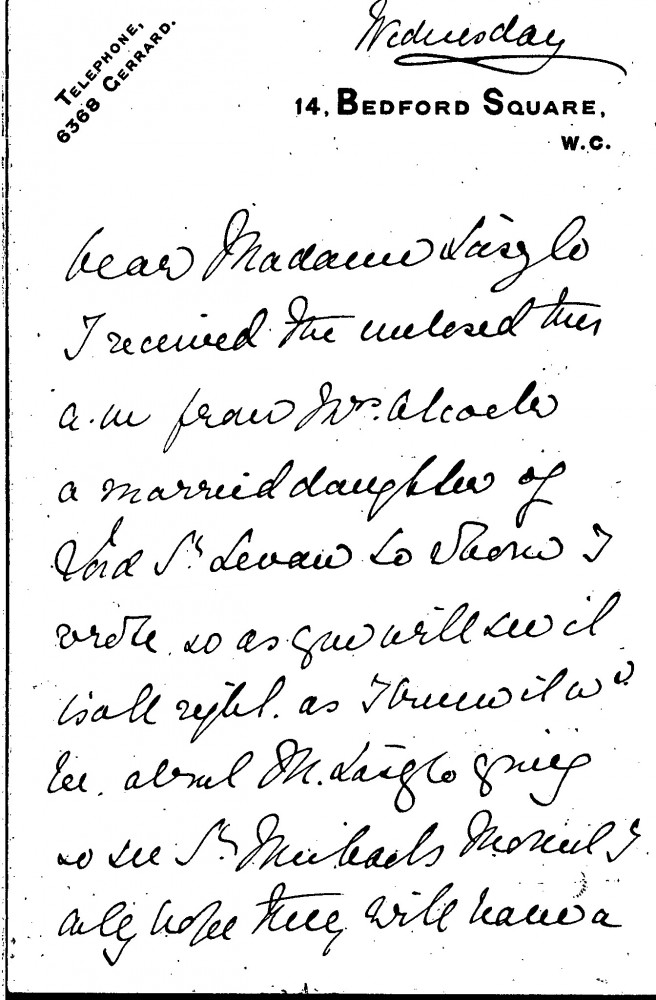 Wednesday
TELEPHONE,
6368 GERRARD.
14, BEDFORD SQUARE,
W.C.
Dear Madame László
I received the enclosed this
a.m from Mrs. Alcock
a married daughter of
Lord St Levan to whom I
wrote so as you will see it
is all right. as I knew it wd
be. about M. László going
to see St Michaels Mount I
only hope they will have a